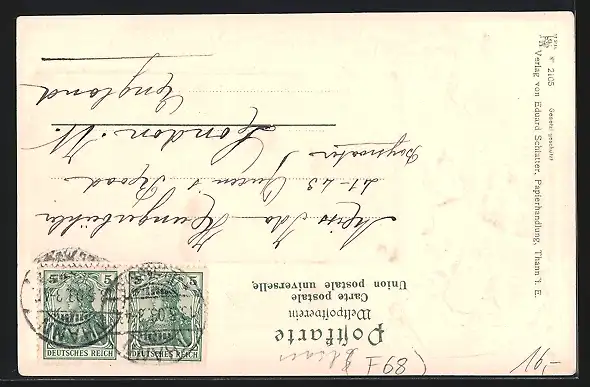 Postkarte
Weltpostverein
Carte postale
Union postale universelle.
Miss Ida Hungerbühler
41-43 Queen's Road
Bayswater
London. W.
England
5 5
DEUTSCHES REICH
5
DEUTSCHES REICH
THANN
№ 2105
Gesetzl. geschützt
Verlag von Eduard Schlatter, Papierhandlung, Thann i. E.
F68
16,-